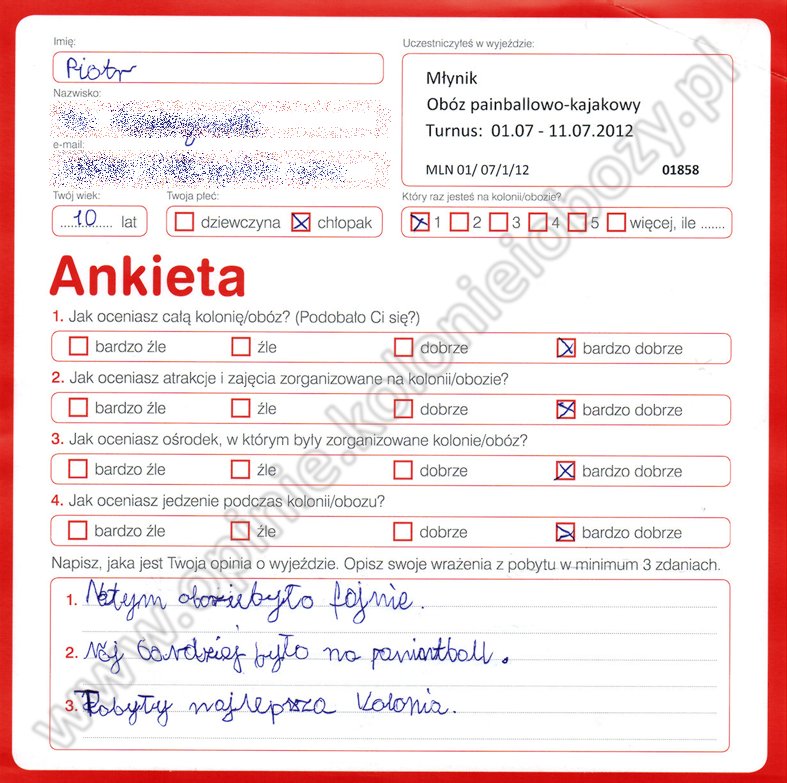 Imię:
Piotr
Uczestniczyłeś w wyjeździe:
Młynik
Obóz painballowo-kajakowy
Turnus: 01.07 - 11.07.2012
MLN 01/ 07/1/12 01858
Nazwisko:
e-mail:
Twój wiek:
10 lat
Twoja płeć:
dziewczyna chłopak
Który raz jesteś na kolonii/obozie?
1 2 3 4 5 więcej, ile .......
Ankieta
1. Jak oceniasz całą kolonię/obóz? (Podobało Ci się?)
bardzo źle źle dobrze bardzo dobrze
2. Jak oceniasz atrakcje i zajęcia zorganizowane na kolonii/obozie?
bardzo źle źle dobrze bardzo dobrze
3. Jak oceniasz ośrodek, w którym były zorganizowane kolonie/obóz?
bardzo źle źle dobrze bardzo dobrze
4. Jak oceniasz jedzenie podczas kolonii/obozu?
bardzo źle źle dobrze bardzo dobrze
Napisz, jaka jest Twoja opinia o wyjeździe. Opisz swoje wrażenia z pobytu w minimum 3 zdaniach.
1. Natym obozie było fojnie.
2. Naj bardziej było na
3. najlepsza kolonia.
www.opinie.kolonieiobozy.pl